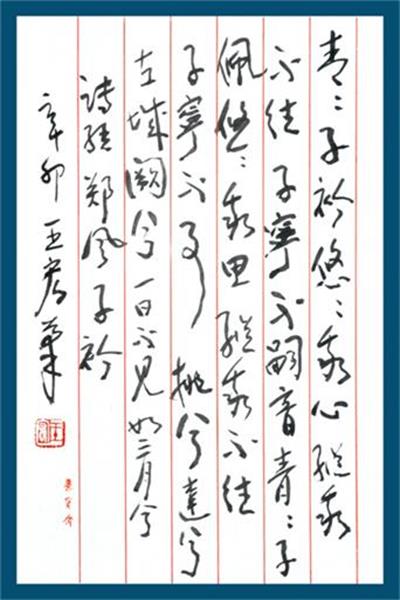 青〻子衿悠〻我心縱我
不往子寧不嗣音青〻子
佩悠〻我思縱我不往
子寧不來挑兮達兮
在城闕兮一日不見如三月兮
詩經鄭風子衿
辛卯王宏